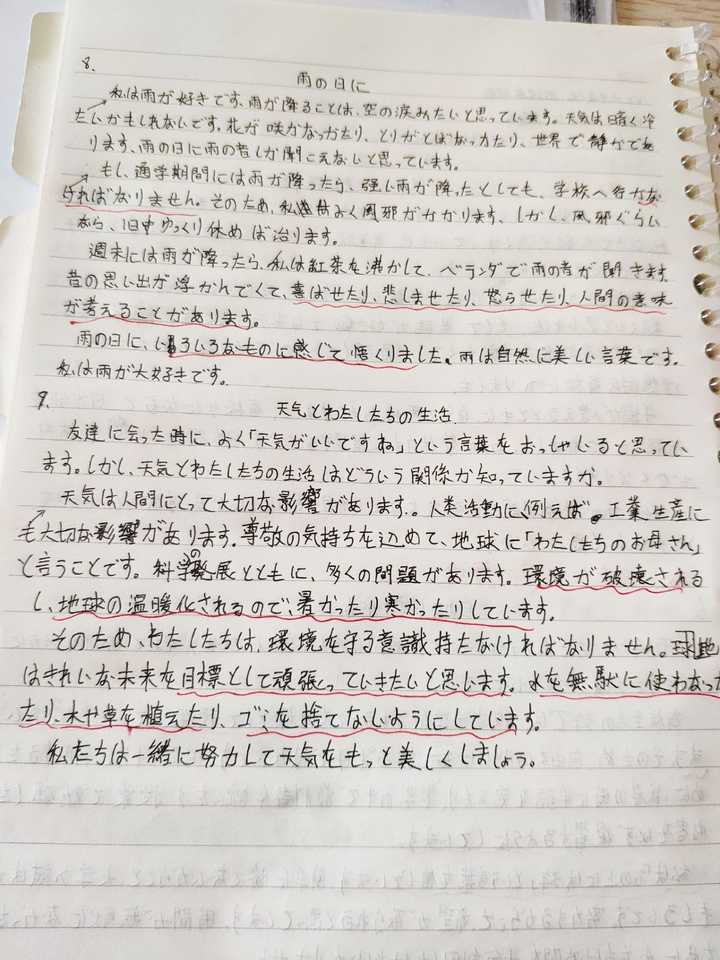 8.
雨の日に
私は雨が好きです、雨が降ることは、空の涙みたいと思っています。天気は暗く冷
たいかもしれないです。花が咲かなっかたり、とりがとばなっかたり、世界で静かで
ります、雨の日に雨の音しか聞こえないと思っています。
もし、通学期間には雨が降ったら、強い雨が降ったとしても、学校へ行かな
ければなりません。そのため、私達はよく風邪がかかります、しかし、風邪ぐらい
なら、1日中ゆっくり休めば治ります。
週末には雨が降ったら、私は紅茶を沸かして、ベランダで雨の音が聞きます
昔の思い出が浮かんでくて、喜ばせたり、悲しませたり、怒らせたり、人間の意味
が考えることがあります。
雨の日に、いろいろなものに感じて悟くりました。雨は自然に美しい言葉です。
私は雨が大好きです。
9.
天気とわたしたちの生活
友達に会った時に、よく「天気がいいですね」という言葉をおっしゃいると思ってい
ます。しかし、天気とわたしたちの生活はどういう関係か知っていますか。
天気は人間にとって大切な影響があります。人類活動に、例えば。工業生産に
も大切な影響があります。尊敬の気持ちを込めて、地球に「わたしたちのお母さん」
と言うことです。科学の発展とともに、多くの問題があります。環境が破壊される
し、地球の温暖化されるので、暑かったり寒かったりしています。
そのため、わたしたちは、環境を守る意識持たなければなりません。球地
はきれいな未来を目標として頑張っていきたいと思います。水を無駄に使わなっか
たり、木や草を植えたり、ゴミを捨てないようにしています。
私たちは一緒に努力して天気をもっと美しくしましょう。